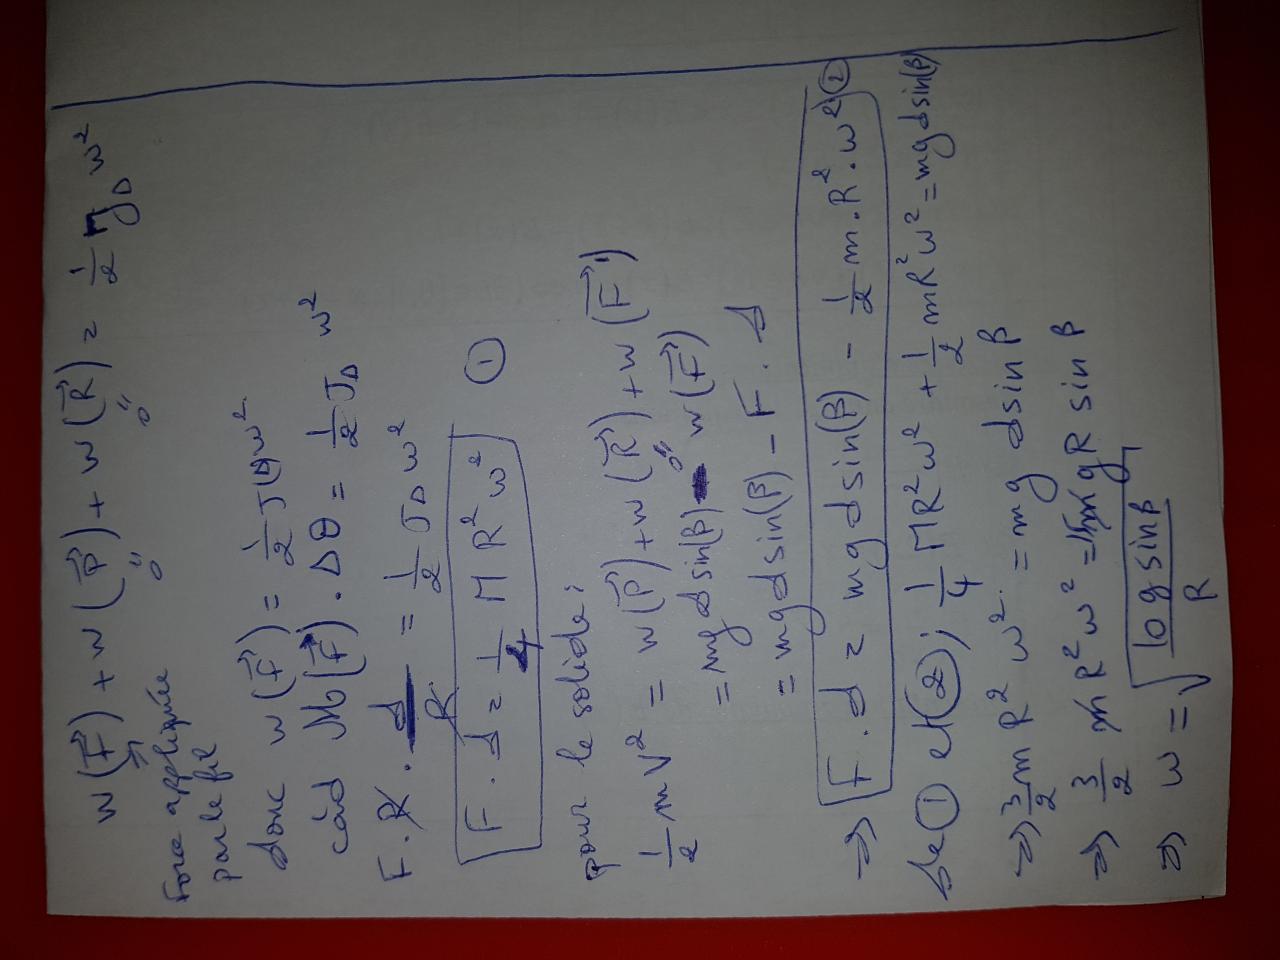 w(F⃗) + w(P⃗) + w(R⃗) = 1/2 MJΔ w²
"0 "0
Force appliquée
par le fil
donc w(F⃗) = 1/2 J(Δ) w²
càd M(F⃗) . Δθ = 1/2 JΔ w²
F.R . d/R = 1/2 JΔ w²
F . d = 1/4 M R² w² ①
pour le solide :
1/2 m V² = w(P⃗) + w(R⃗) + w(F⃗')
"0
= mg d sin(β) - w(F⃗)
= mg d sin(β) - F . d
⇒ F . d = mg d sin(β) - 1/2 m . R² . w² ②
de ① et ② ; 1/4 MR²w² + 1/2 mR²w² = mg d sin(β)
⇒ 3/2 m R² w² = mg d sin β
⇒ 3/2 m R² w² = 15 m g R sin β
⇒ w = √(10 g sin β / R)